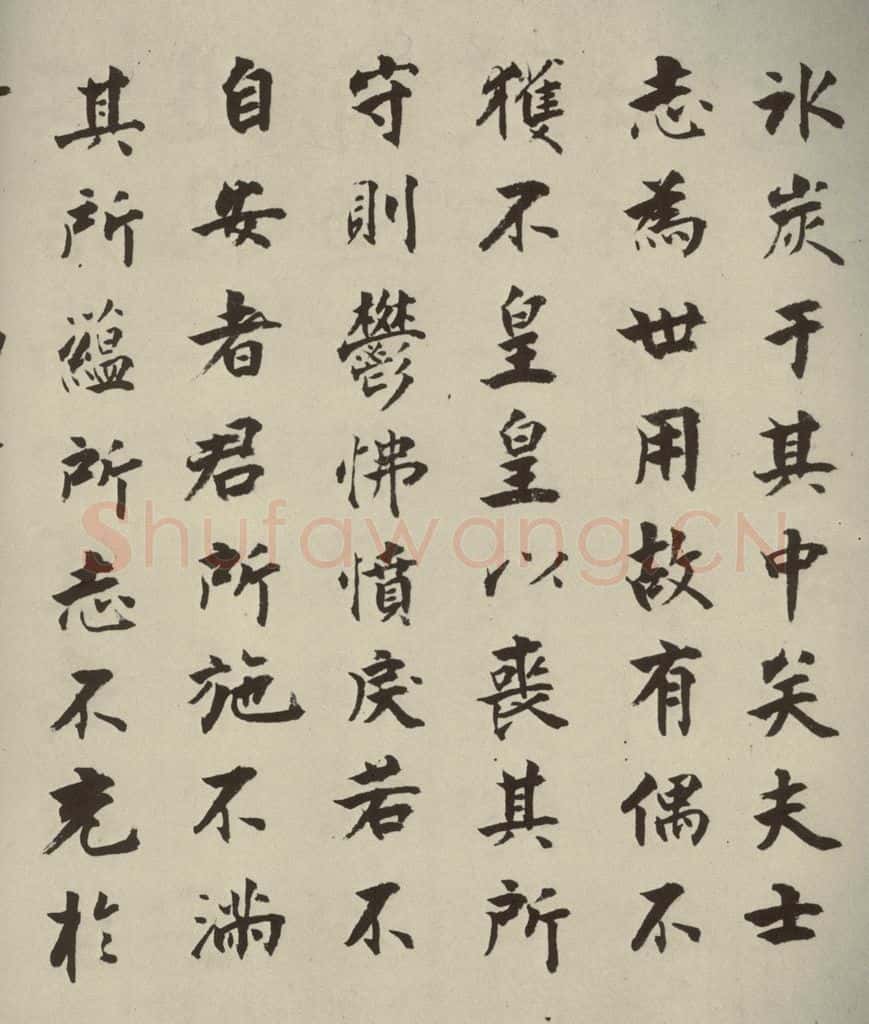 冰炭于其中矣夫士
志為世用故有偶不
獲不皇皇以喪其所
守則鬱怫憤戾若不
自安者君所施不滿
其所蘊所志不充於
Shufawang.CN